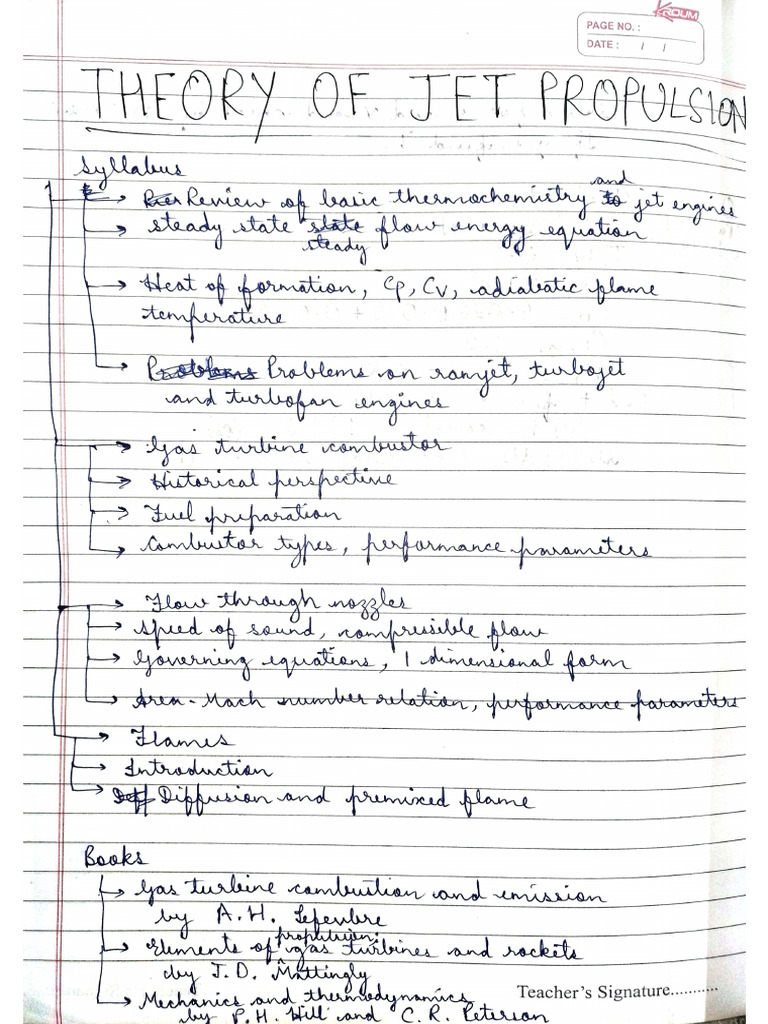 KROUM
PAGE NO. :
DATE : / /
THEORY OF JET PROPULSION
Syllabus
→ Review of basic thermochemistry and jet engines
→ steady state steady flow energy equation
→ Heat of formation, Cp, Cv, adiabatic flame
temperature
→ Problems on ramjet, turbojet
and turbofan engines
→ Gas turbine combustor
→ Historical perspective
→ Fuel preparation
→ Combustor types, performance parameters
→ Flow through nozzles
→ speed of sound, compressible flow
→ Governing equations, 1 dimensional form
→ Area-Mach number relation, performance parameters
→ Flames
→ Introduction
→ Diffusion and premixed flame
Books
→ Gas turbine combustion and emission
by A.H. Lefevbre
→ Elements of propulsion: gas turbines and rockets
by J.D. Mattingly
→ Mechanics and thermodynamics
by P.H. Hill and C.R. Peterson
Teacher's Signature...........